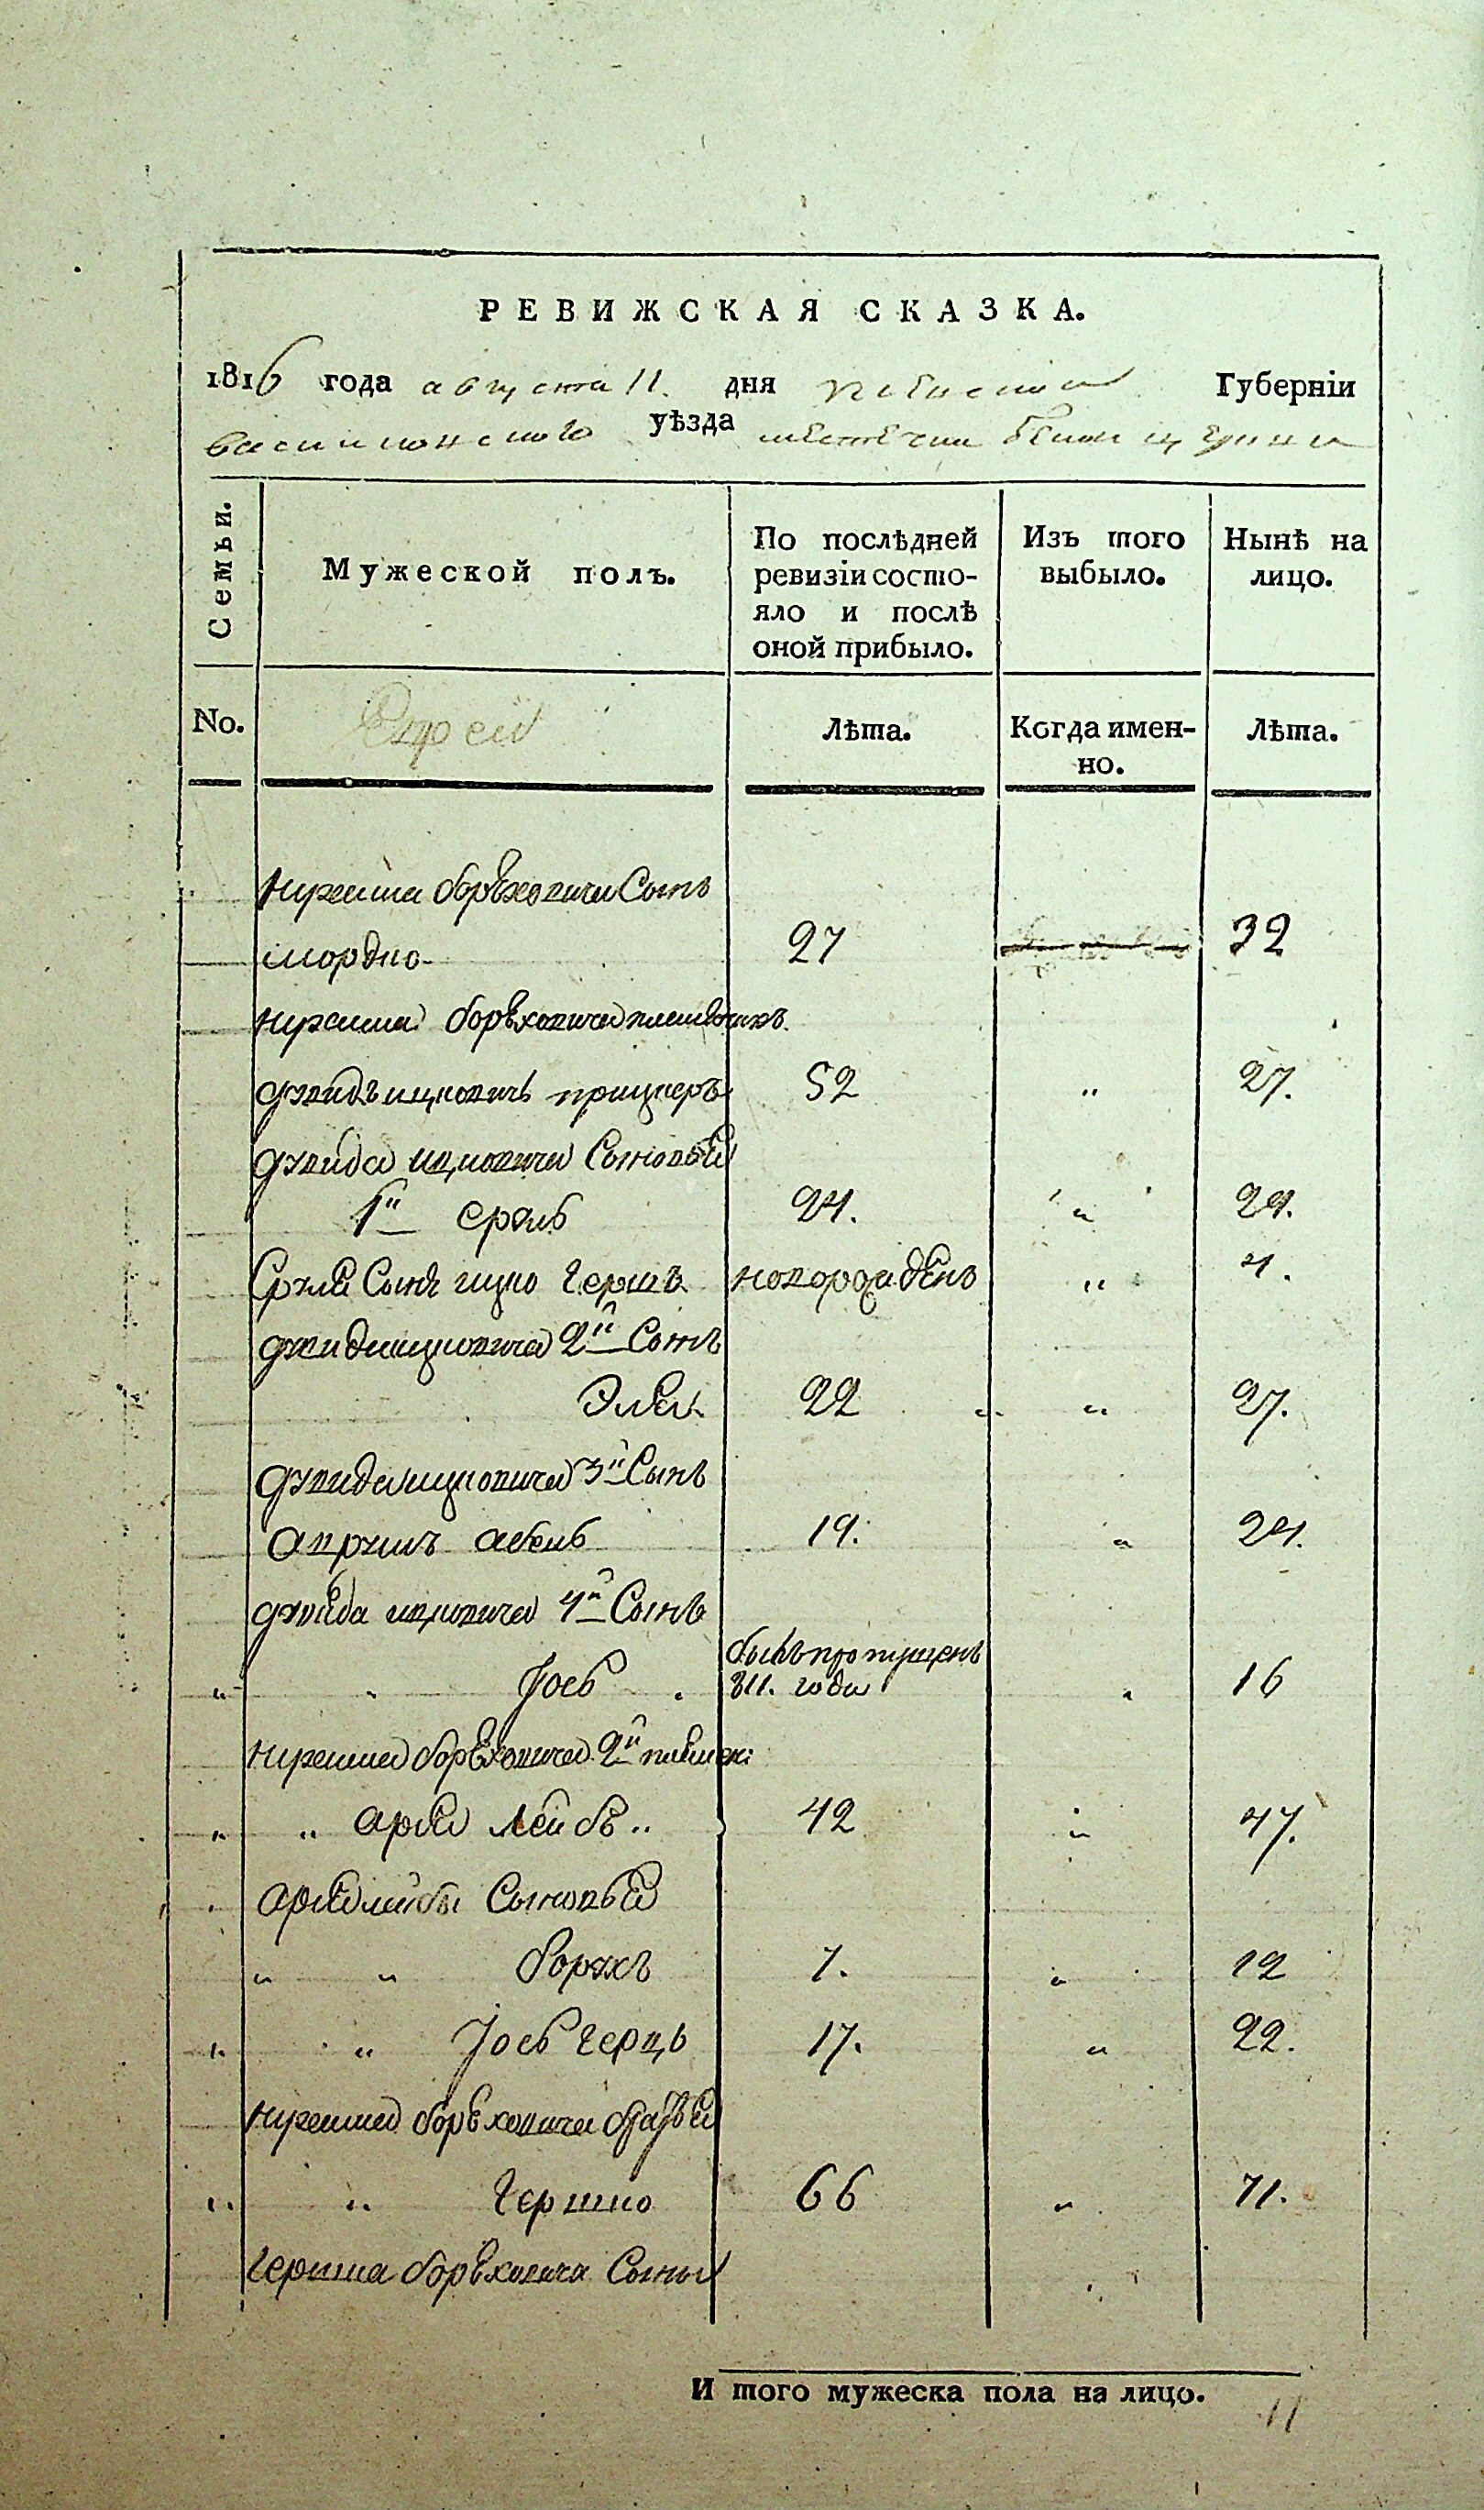 РЕВИЖСКАЯ СКАЗКА.
1816 года августа 11. дня Киевской Губерніи
василковского уѣзда местечка белой церкви
Семьи. Мужеской полъ. По послѣдней ревизіи состояло и послѣ оной прибыло. Изъ того выбыло. Нынѣ на лицо.
No. Евреи Лѣта. Когда именно. Лѣта.
боръховича Сынъ
мордко 27 32
боръховича племянникъ
ицковичъ 52 „
ицковича Сыновья
1й Сруль 24. „ 29.
Сруля Сынъ ицко Гершъ новорожденъ „ 4.
ицковича 2й Сынъ
22 „ 27.
ицковича 3й Сынъ
аврумъ 19. „ 24.
ицковича 4й Сынъ
„ „ Іось былъ пропущенъ 811. года „ 16
боръховича 2й племен:
„ „ арье Лейбъ „ 42 „ 47.
арье лейбы Сыновья
„ „ борухъ 7. „ 12
„ „ Іось Герцъ 17. „ 22.
боръховича братья
„ „ Гершко 66 „ 71.
Герша боръховича Сыны
И того мужеска пола на лицо. 11